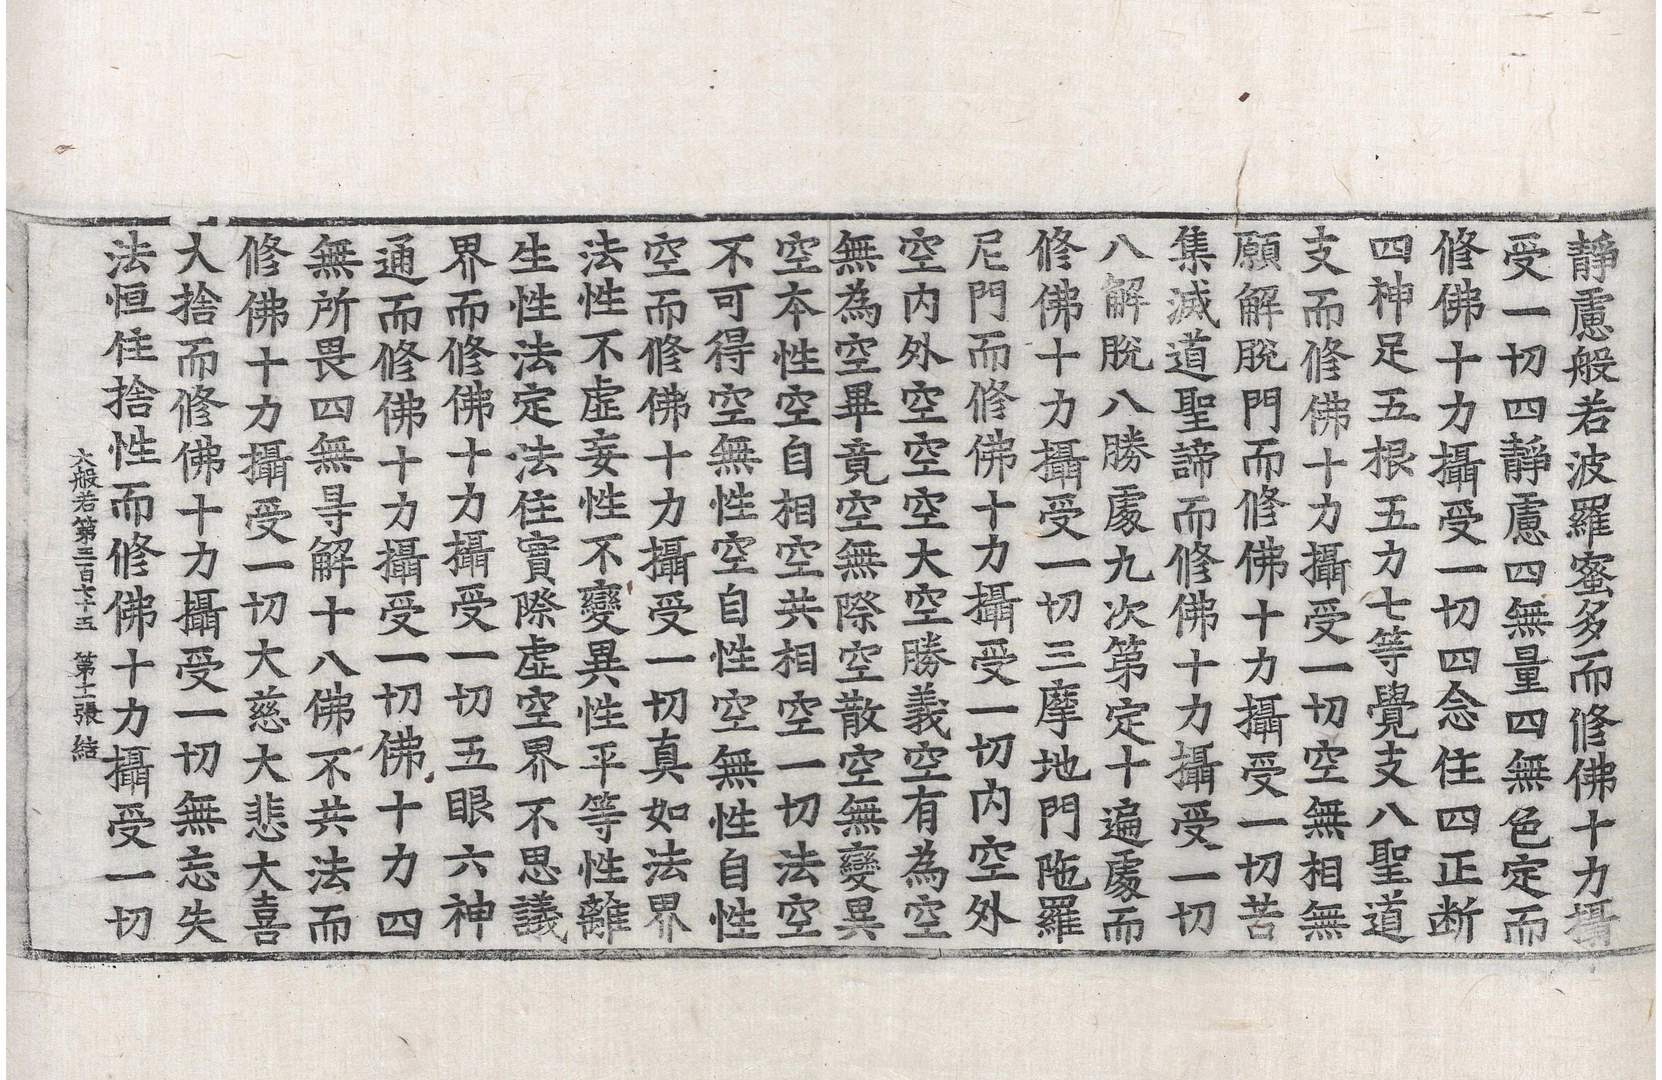 靜慮般若波羅蜜多而修佛十力攝
受一切四靜慮四無量四無色定而
修佛十力攝受一切四念住四正断
四神足五根五力七等覺支八聖道
支而修佛十力攝受一切空無相無
願解脫門而修佛十力攝受一切苦
集滅道聖諦而修佛十力攝受一切
八解脫八勝處九次第定十遍處而
修佛十力攝受一切三摩地門陁羅
尼門而修佛十力攝受一切内空外
空内外空空空大空勝義空有為空
無為空畢竟空無際空散空無變異
空本性空自相空共相空一切法空
不可得空無性空自性空無性自性
空而修佛十力攝受一切真如法界
法性不虛妄性不變異性平等性離
生性法定法住實際虛空界不思議
界而修佛十力攝受一切五眼六神
通而修佛十力攝受一切佛十力四
無所畏四無㝵解十八佛不共法而
修佛十力攝受一切大慈大悲大喜
大捨而修佛十力攝受一切無忘失
法恒住捨性而修佛十力攝受一切
大般若第三百七十五 第十二張 結